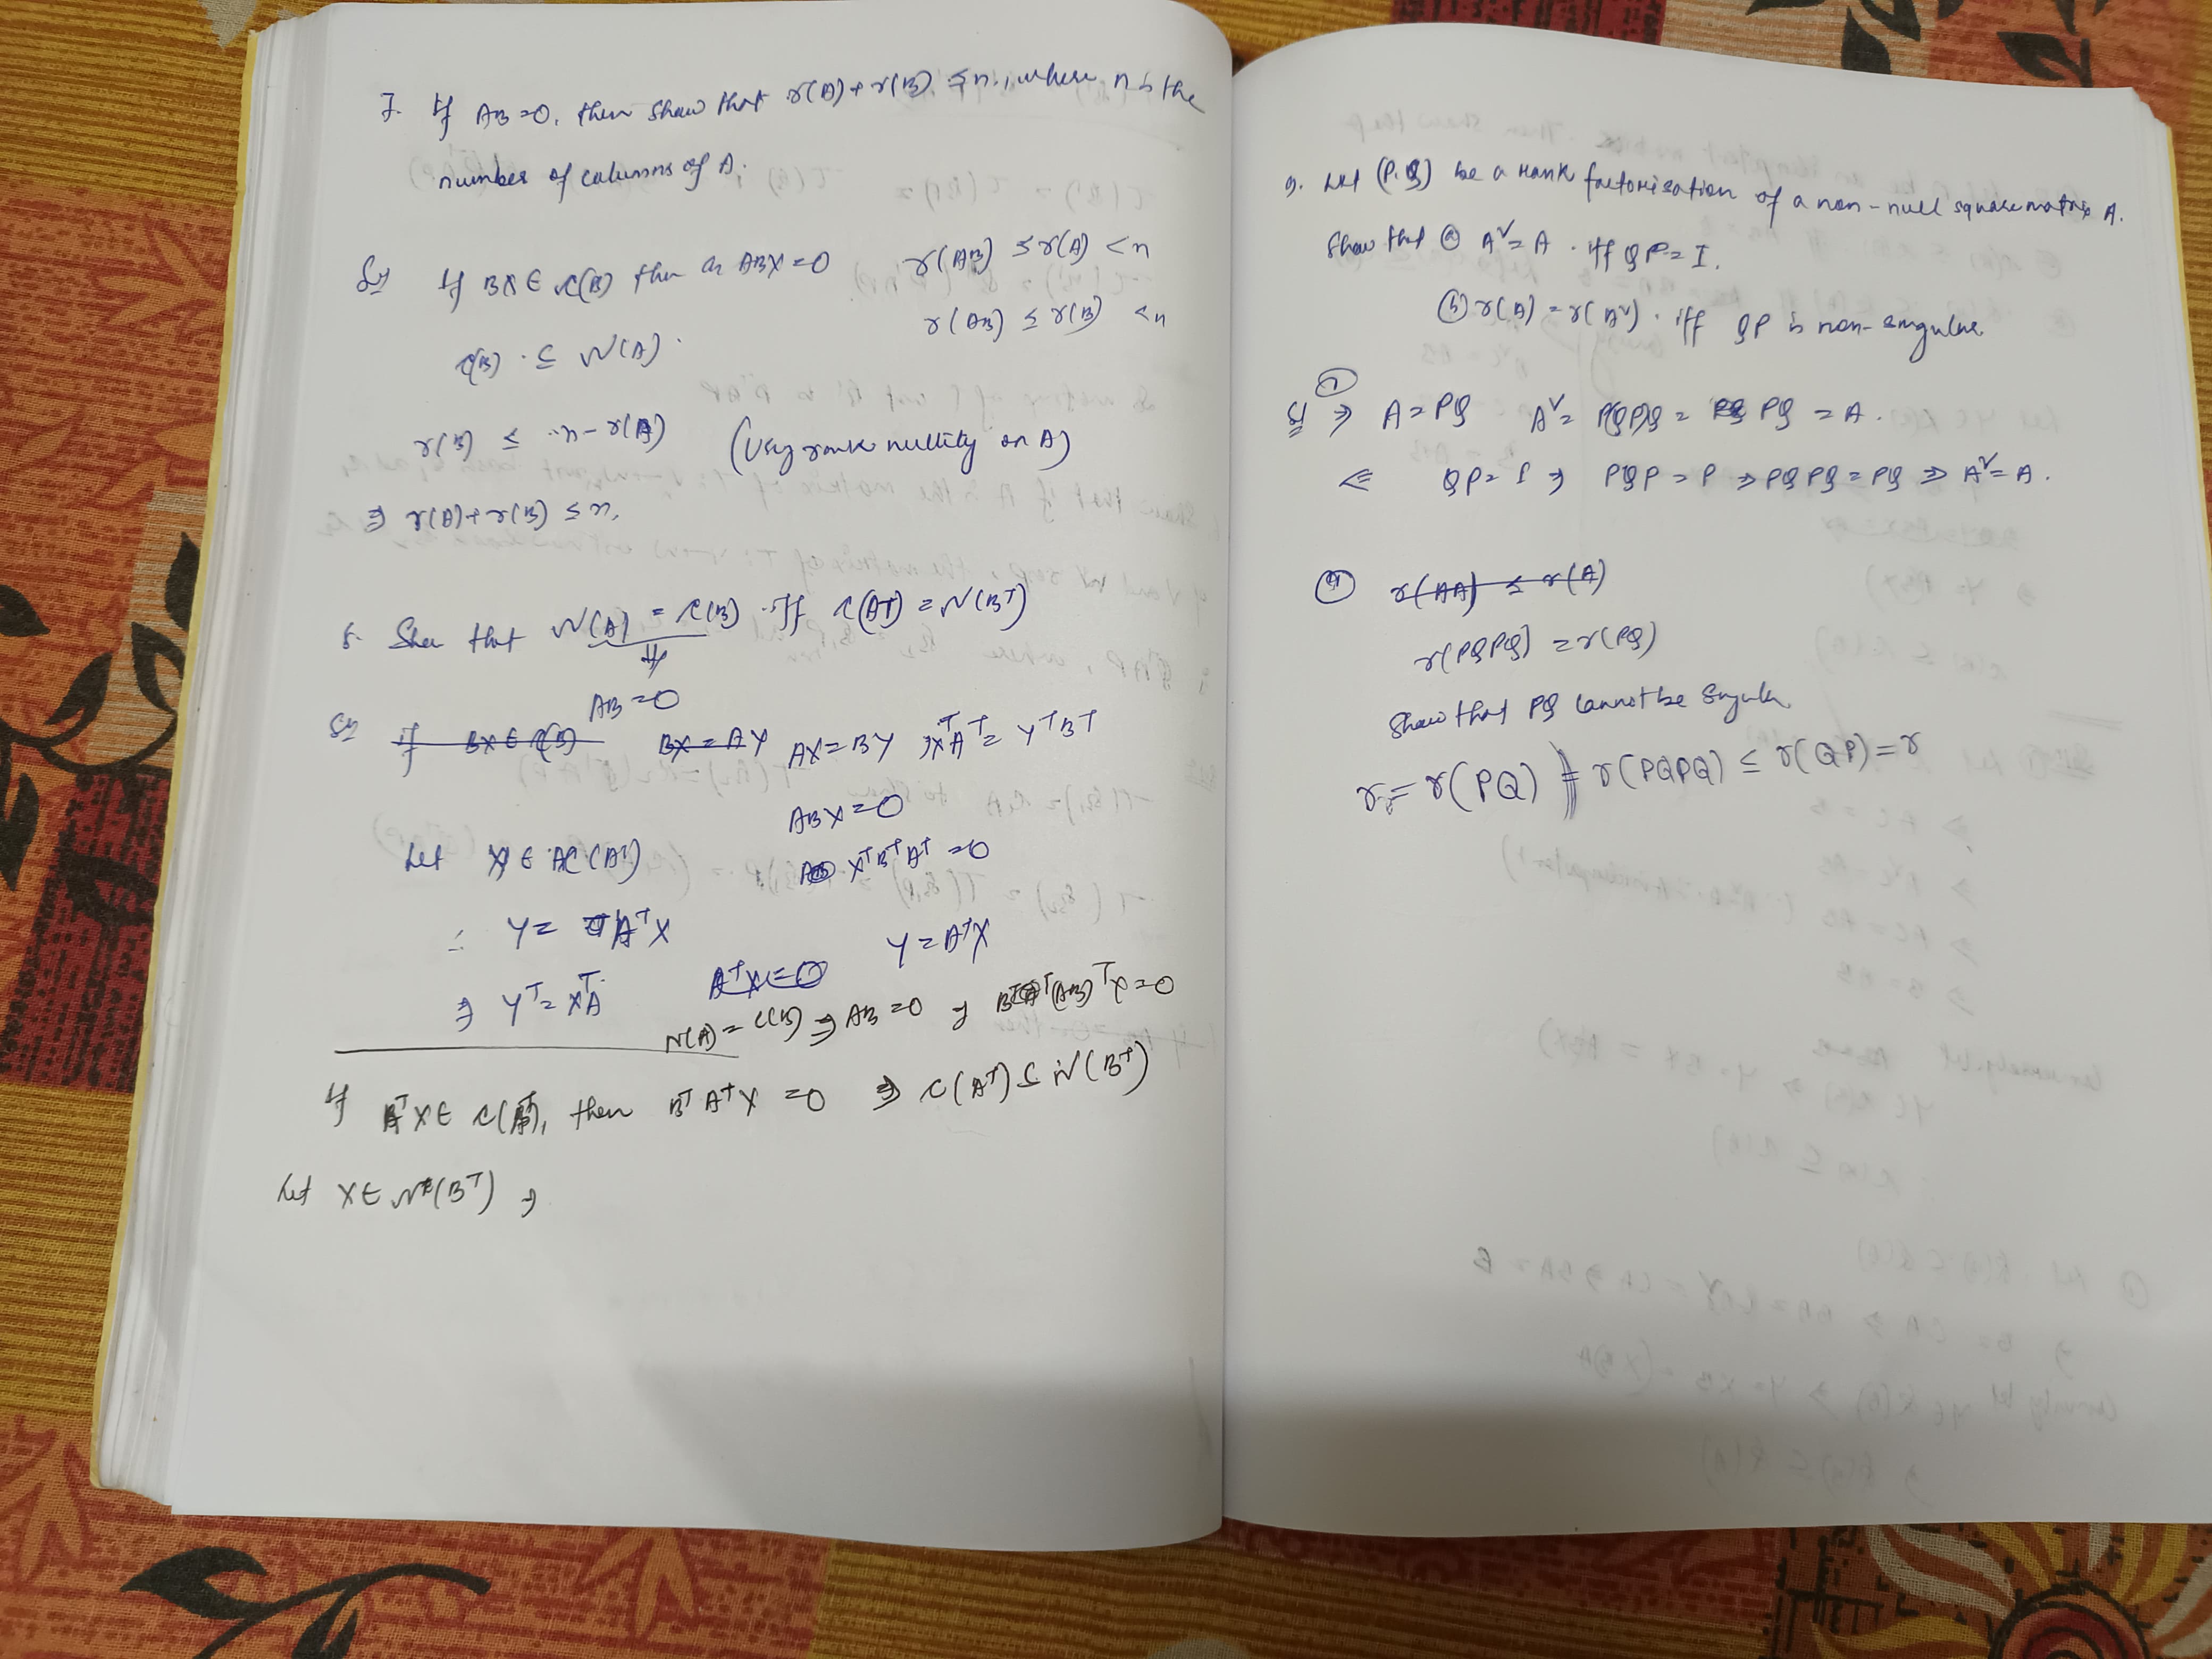 7. If AB=0, then show that r(A)+r(B) ≤ n, where n is the
number of columns of A.
If BX ∈ C(B) then ABX=0
r(AB) ≤ r(A) < n
r(AB) ≤ r(B) < n
C(B) ⊆ N(A).
r(B) ≤ n - r(A) (Using rank nullity on A)
⇒ r(A)+r(B) ≤ n.
8. Show that N(A) = C(B) iff C(Aᵀ) = N(Bᵀ)
⇓
AB=0
If BX ∈ C(B) BX = AY AX = BY ⇒ XᵀAᵀ = YᵀBᵀ
ABX=0
Let ∈ C(Aᵀ)
XᵀBᵀAᵀ =0
∴ Y = AᵀX
Y = AᵀX
AᵀX=0
⇒ Yᵀ = XᵀA
N(A) = C(B) ⇒ AB=0 ⇒ (AB)ᵀX=0
If AᵀX ∈ C(Aᵀ), then BᵀAᵀX =0 ⇒ C(Aᵀ) ⊆ N(Bᵀ)
Let X ∈ N(Bᵀ) ⇒
9. Let (P,Q) be a rank factorisation of a non-null square matrix A.
Show that (a) A² = A iff QP = I.
(b) r(A) = r(A²) iff QP is non-singular.
(1)
⇒ A = PQ A² = P(QP)Q = PQ = A.
⇐ QP = I ⇒ PQP = P ⇒ PQPQ = PQ ⇒ A² = A.
r(AA) ≤ r(A)
r(PQPQ) = r(PQ)
Show that PQ cannot be singular
r = r(PQ) = r(PQPQ) ≤ r(QP) = r